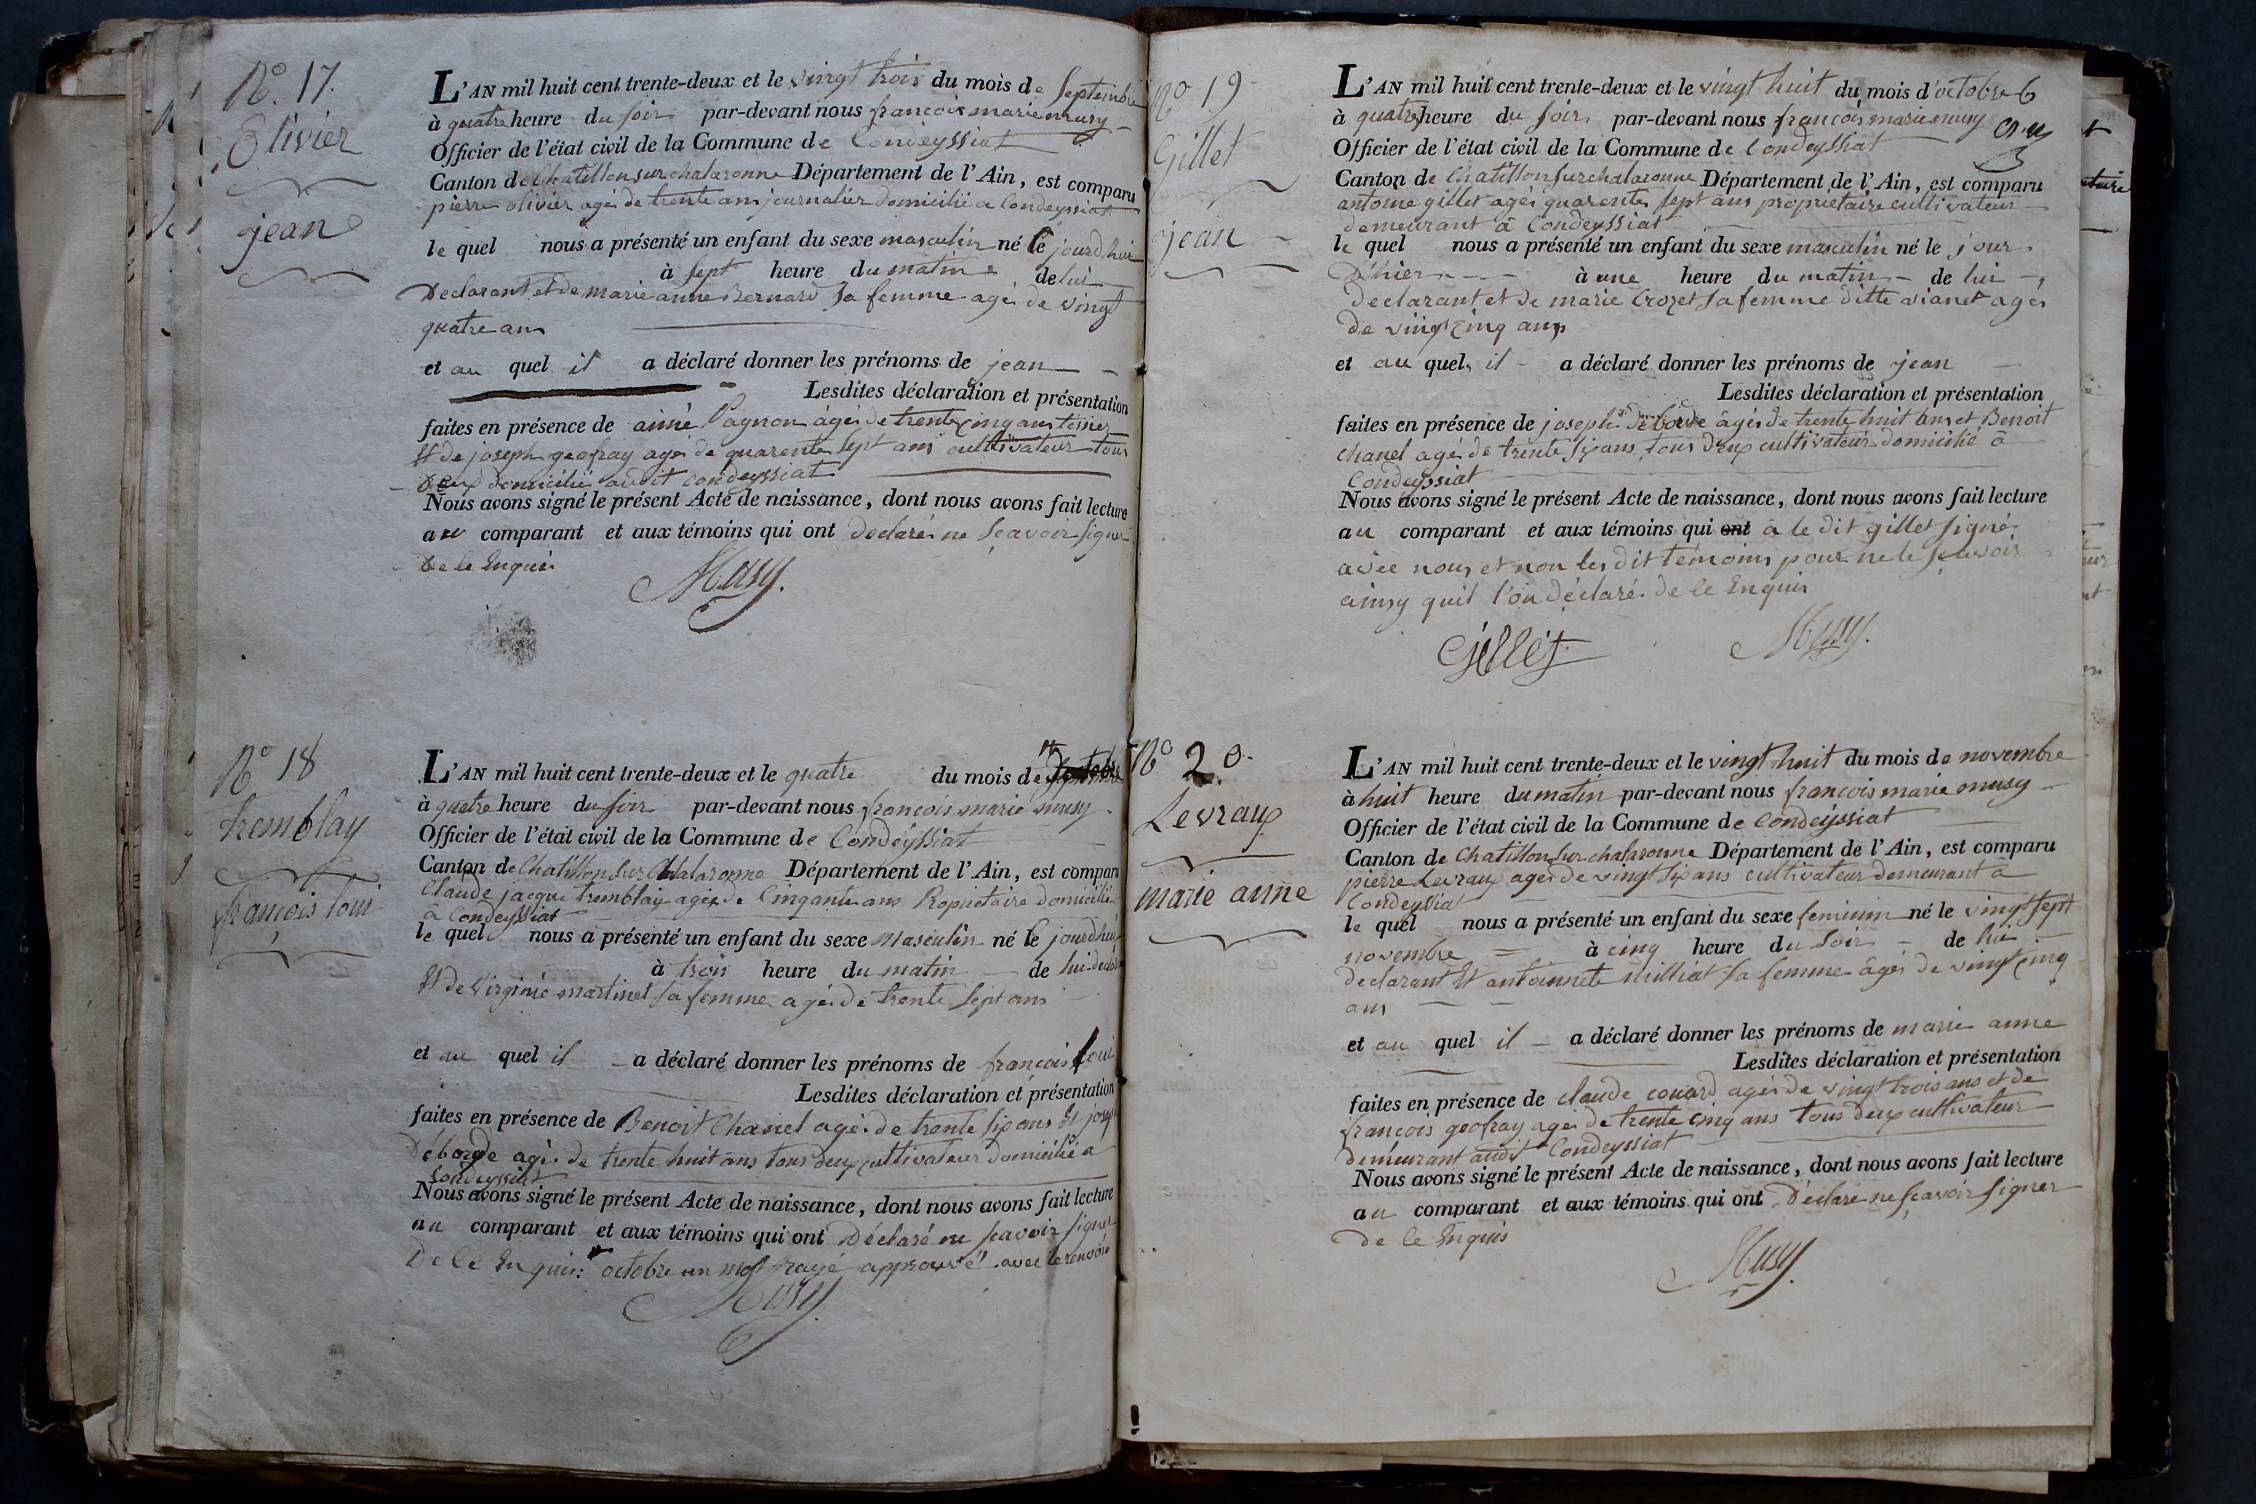 N.º 17.
Olivier
jean
L'AN mil huit cent trente-deux et le vingt trois du mois de Septembre
à quatre heure du soir par-devant nous francois marie musy
Officier de l'état civil de la Commune de Condeyssiat
Canton de Chatillon sur chalaronne Département de l'Ain, est comparu
pierre olivier agé de trente ans journalier domicilié a Condeyssiat
le quel nous a présenté un enfant du sexe masculin né le jourdhui
à sept heure du matin de lui
Declarant et de marie anne Bernard sa femme agé de vingt
quatre ans
et au quel il a déclaré donner les prénoms de jean
Lesdites déclaration et présentation
faites en présence de aimé Pagnon âgé de trente cinq ans
Et de joseph geofray agé de quarente sept ans cultivateur tous
deux domicilié audit condeyssiat
Nous avons signé le présent Acte de naissance, dont nous avons fait lecture
au comparant et aux témoins qui ont declaré ne sçavoir signer
De le Enquis
Musy.
Nº 18
tremblay
françois loui
L'AN mil huit cent trente-deux et le quatre du mois de
à quatre heure du soir par-devant nous françois marie musy
Officier de l'état civil de la Commune de Condeyssiat
Canton de Chatillon sur Chalaronne Département de l'Ain, est comparu
Claude jacque tremblay agé de Cinqante ans Propriétaire Domicilié
à Condeyssiat
le quel nous a présenté un enfant du sexe Masculin né le jourdhui
à trois heure du matin de lui declar
Et de Virginie martinet sa femme agé de trente sept ans
et au quel il a déclaré donner les prénoms de francois loui
Lesdites déclaration et présentation
faites en présence de Benoit Chanel agé de trente six ans Et josep
Déborde agé de trente huit ans tous deux cultivateur domicilié a
Condeyssiat
Nous avons signé le présent Acte de naissance, dont nous avons fait lecture
au comparant et aux témoins qui ont Déclaré ne scavoir signer
De le Enquis: octobre un mot rayé approuvé avec le renvoie
Musy.
Nº 19
Gillet
jean
L'AN mil huit cent trente-deux et le vingt huit du mois d'octobre
à quatre heure du soir par-devant nous françois marie musy
Officier de l'état civil de la Commune de Condeyssiat
Canton de Chatillon sur chalaronne Département de l'Ain, est comparu
antoine gillet agé quarente sept ans proprietaire cultivateur
demeurant à Condeyssiat
le quel nous a présenté un enfant du sexe masculin né le jour
D'hier à une heure du matin de lui
declarant et de marie Crozet sa femme ditte vianet agé
de vingt cinq ans
et au quel il a déclaré donner les prénoms de jean
Lesdites déclaration et présentation
faites en présence de joseph deborde âgé de trente huit ans et Benoit
chanel agé de trente six ans tous deux cultivateur domicilié à
Condeyssiat
Nous avons signé le présent Acte de naissance, dont nous avons fait lecture
au comparant et aux témoins qui ont à le dit gillet signé
avec nous et non les dit témoins pour ne le sçavoir
ainsy quil l'on déclaré de le Enquis
Gillet
Musy.
Nº 20.
Levraux
marie anne
L'AN mil huit cent trente-deux et le vingt huit du mois de novembre
à huit heure du matin par-devant nous francois marie musy
Officier de l'état civil de la Commune de Condeyssiat
Canton de Chatillon sur chalaronne Département de l'Ain, est comparu
pierre Levraux agé de vingt six ans cultivateur demeurant à
Condeyssiat
le quel nous a présenté un enfant du sexe feminin né le vingt sept
novembre à cinq heure du soir de lui
declarant Et antoinnete Milliat sa femme âgé de vingt cinq
ans
et au quel il a déclaré donner les prénoms de marie anne
Lesdites déclaration et présentation
faites en présence de claude couard agé de vingt trois ans et de
françois geofray agé de trente cinq ans tous deux cultivateur
demeurant audit Condeyssiat
Nous avons signé le présent Acte de naissance, dont nous avons fait lecture
au comparant et aux témoins qui ont Déclaré ne sçavoir signer
de le Enquis
Musy.